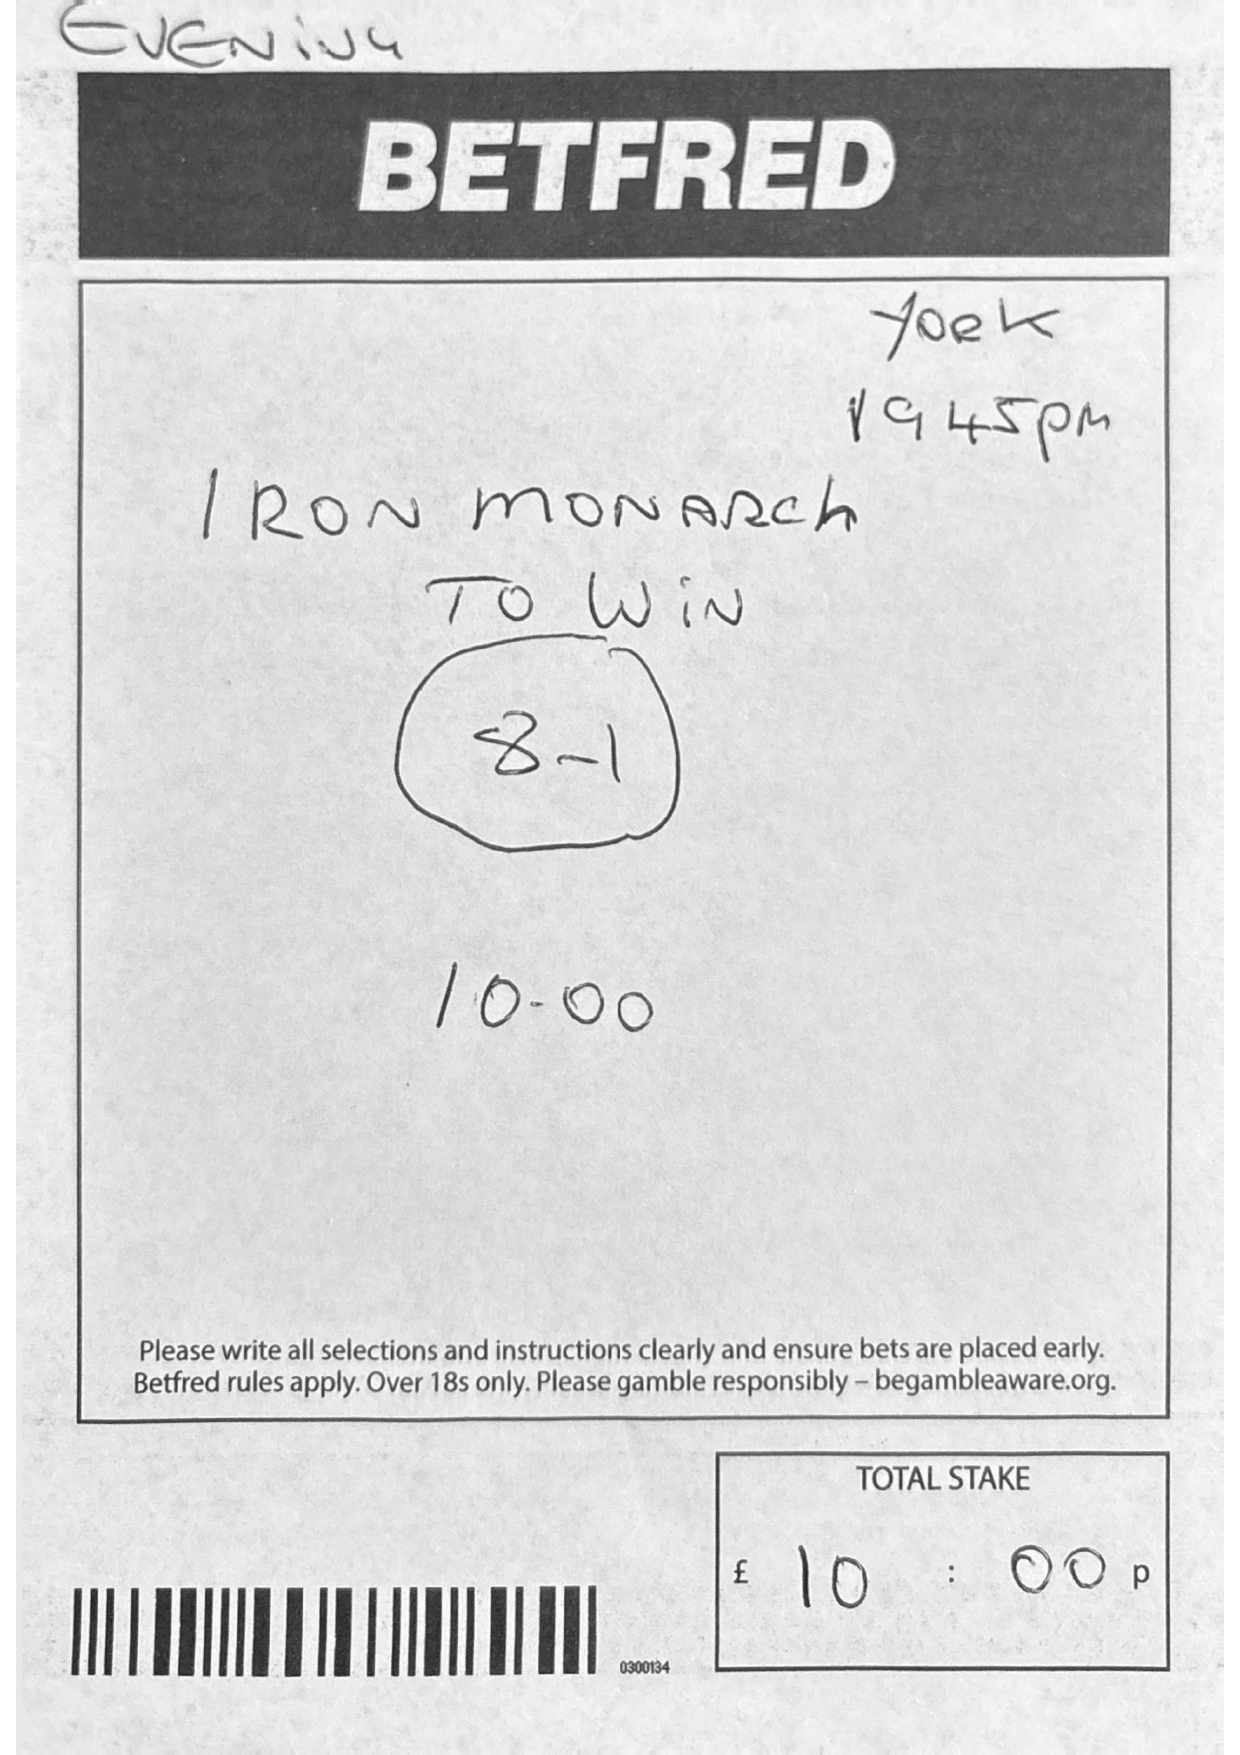 EVENING
BETFRED
York
1945pm
IRON MONARCH
TO WIN
8-1
10-00
Please write all selections and instructions clearly and ensure bets are placed early.
Betfred rules apply. Over 18s only. Please gamble responsibly – begambleaware.org.
TOTAL STAKE
£ 10 : 00 p
0300134